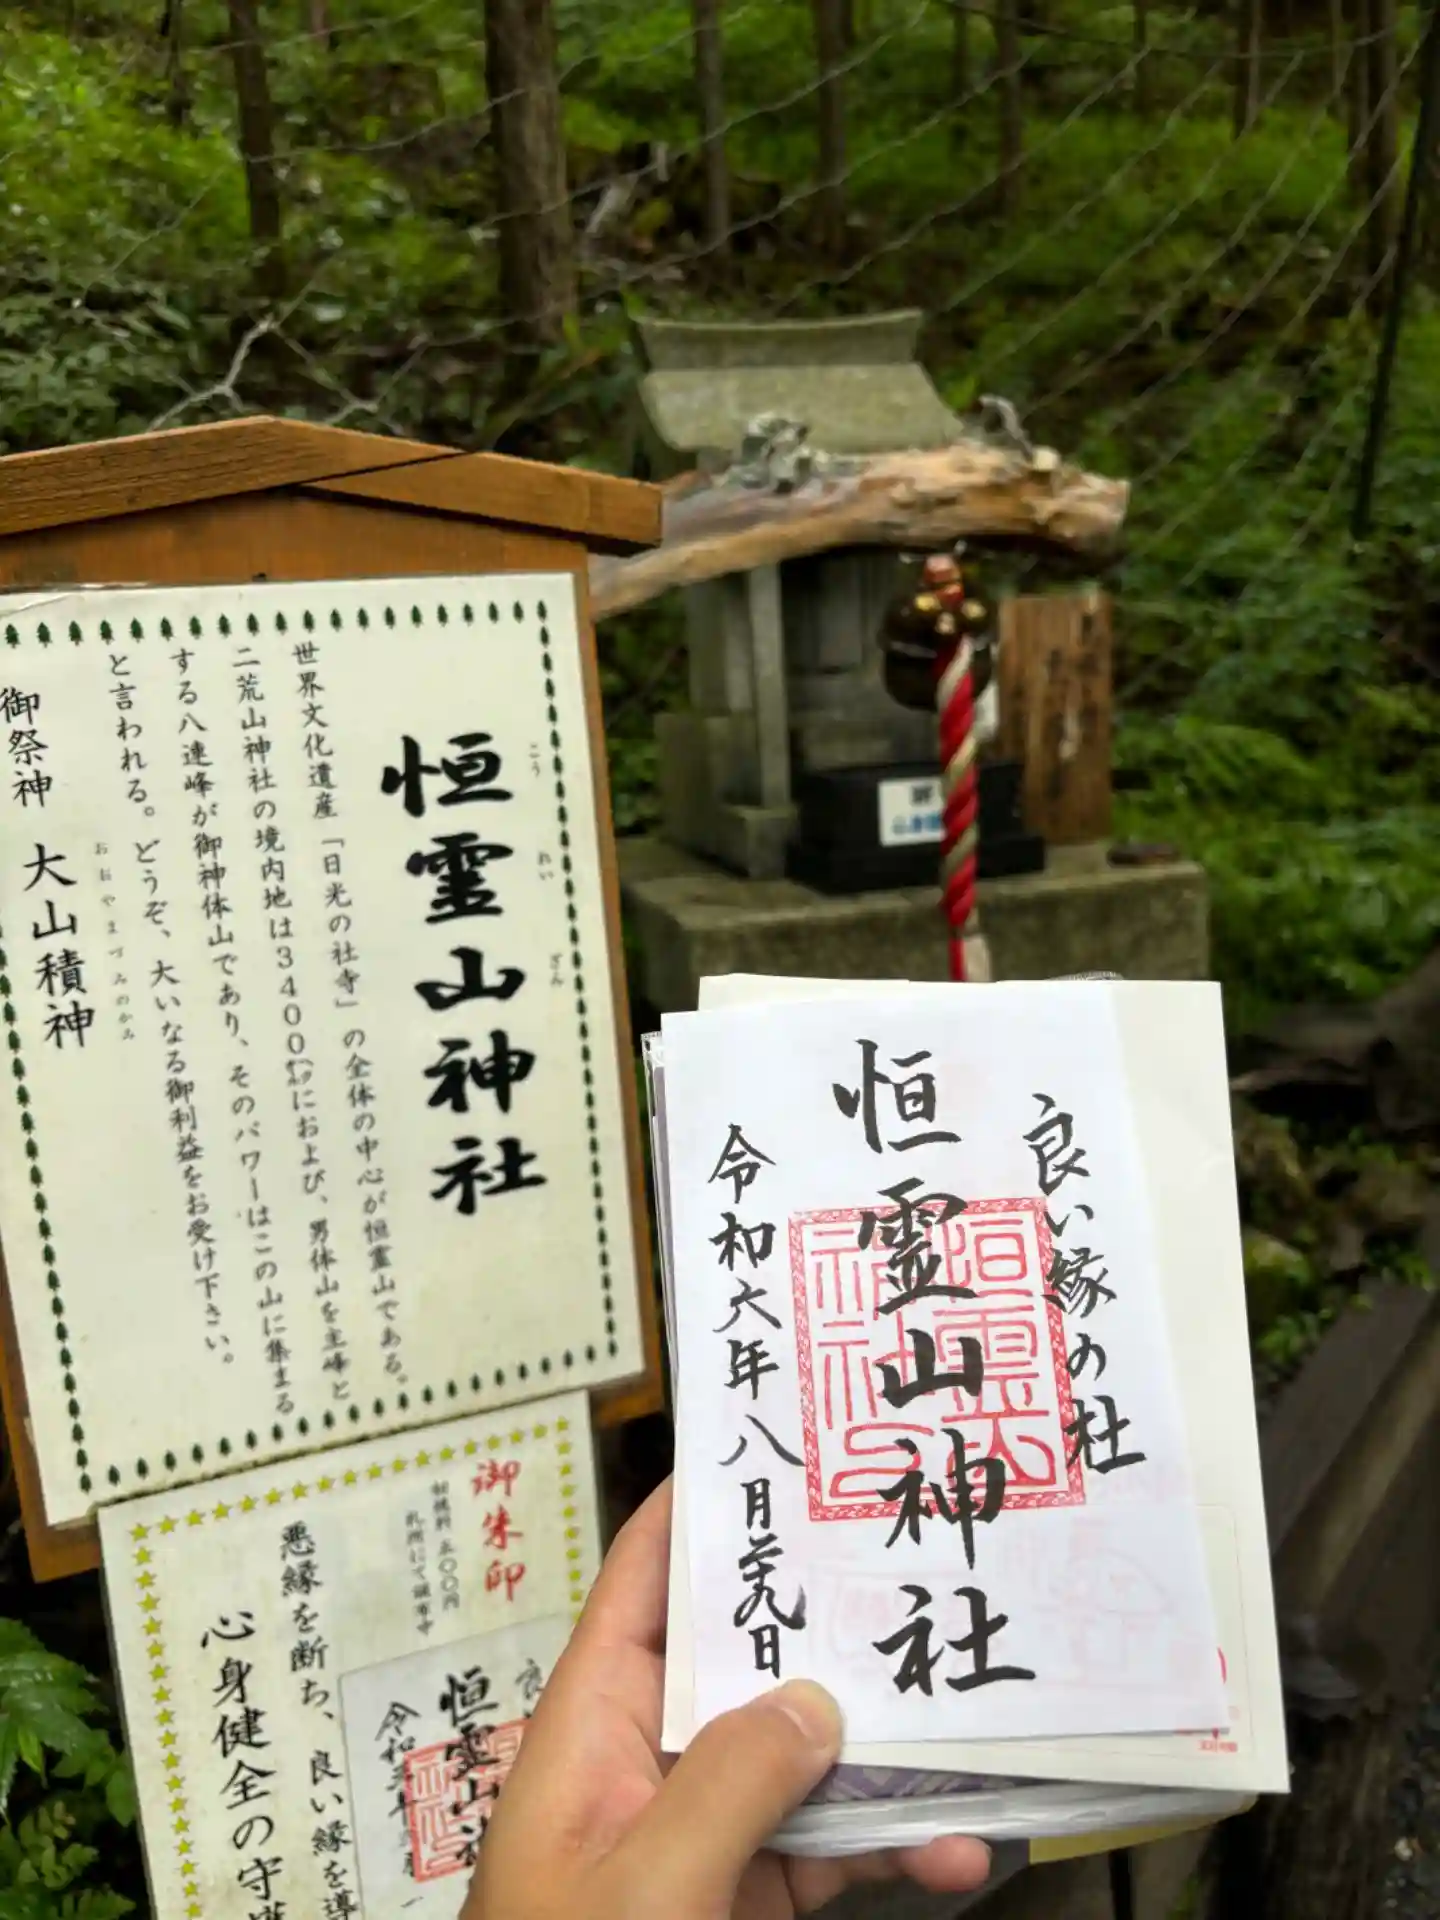 恒霊山神社
こう
れい
ざん
世界文化遺産「日光の社寺」の全体の中心が恒霊山である。
二荒山神社の境内地は3400㌶におよび、男体山を主峰と
する八連峰が御神体山であり、そのパワーはこの山に集まる
と言われる。どうぞ、大いなる御利益をお受け下さい。
御祭神 大山積神
おおやまづみのかみ
御朱印
初穂料 五〇〇円
札所にて頒布中
悪縁を断ち、良い縁を導
心身健全の守護
良
恒霊山神
令和
良い縁の杜
恒霊山神社
令和六年八月廿九日
恒霊山
神社